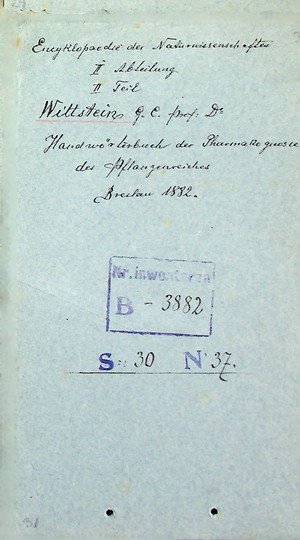 Encyklopaedie der Naturwissenschaften
II Abteilung
II Teil
Wittstein, G. C. Prof. Dr
Handwörterbuch der Pharmakognosie
des Pflanzenreiches
Breslau 1882.
Nr. inwentarza
B - 3882
S: 30 N 37.